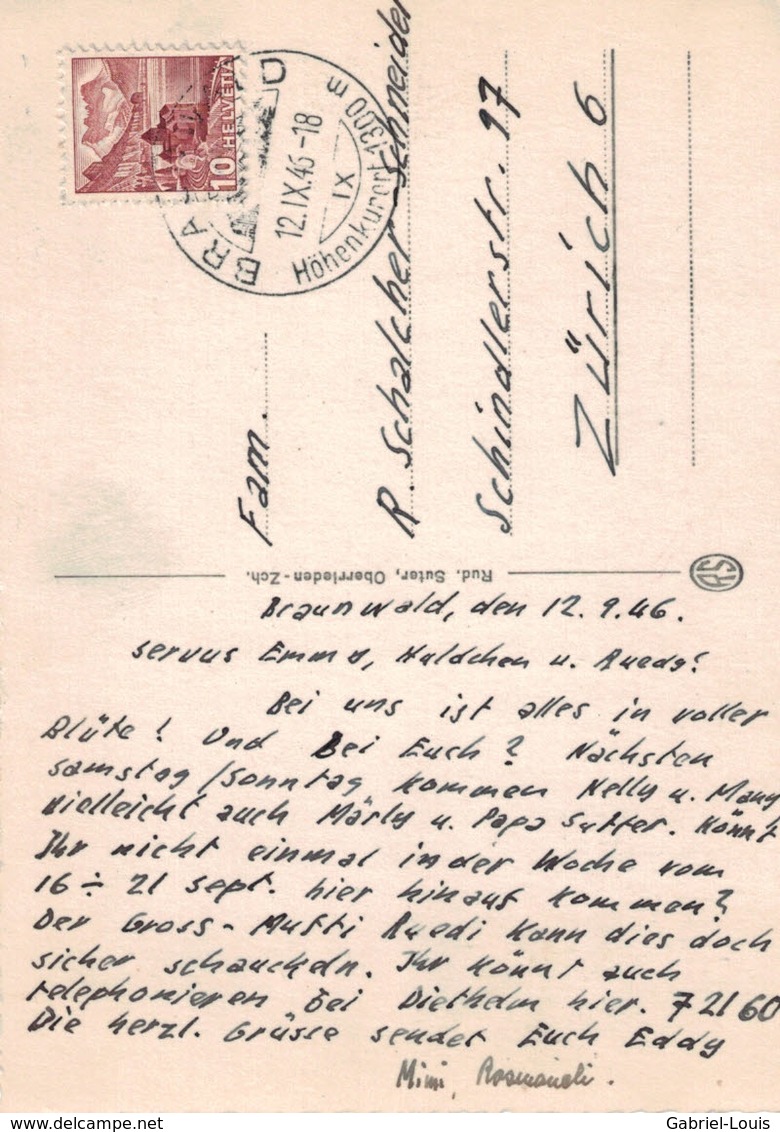 10 HELVETIA
BRA D
12.IX.46-18
IX
Höhenkurort 1300 m
Fam.
R. Schalcher-Schneider
Schindlerstr. 97
Zürich 6
Rud. Suter, Oberrieden-Zch.
RS
Braunwald, den 12.9.46.
servus Emmo, u. Ruedy!
Bei uns ist alles in voller
Blüte! Und Bei Euch? Nächsten
Samstag/Sonntag kommen Nelly u. Many
vielleicht auch Märly u. Papa Sutter. Könnt
Ihr nicht einmal in der Woche vom
16 ÷ 21 sept. hier hinauf kommen?
Der Gross-Mufti Ruedi kann dies doch
sicher schauckeln. Ihr könnt auch
telephonieren bei Diethelm hier. 7 21 60
Die herzl. Grüsse sendet Euch Eddy
Mimi,
www.delcampe.net
Gabriel-Louis